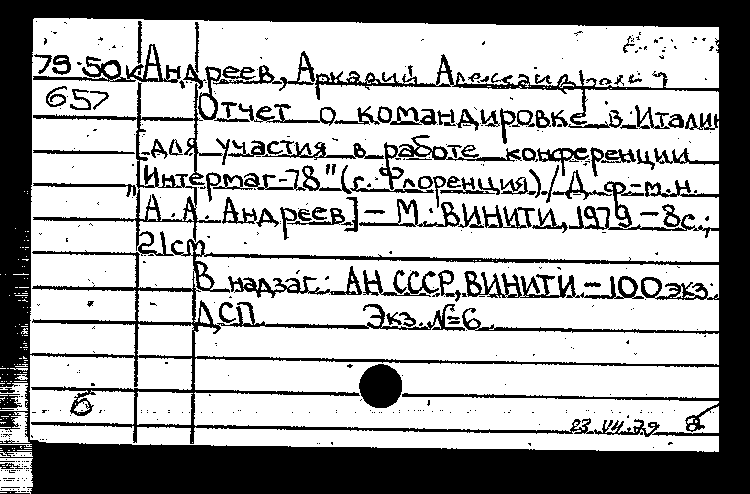 79·50к Андреев, Аркадий Александрович
657 Отчет о командировке в Италию
[для участия в работе конференции
"Интермаг-78" (г. Флоренция)/Д. ф-м.н.
А. А. Андреев] – М.: ВИНИТИ, 1979 – 8с.;
21см
В надзаг.: АН СССР, ВИНИТИ – 100 экз.
ДСП. Экз. №6.
б
23.VII.79